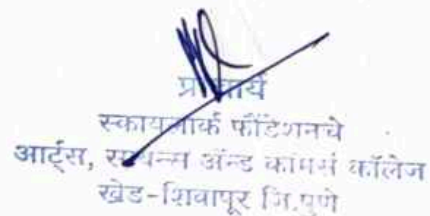 प्राचार्य
स्कायमार्क फौंडेशनचे
आर्ट्स, सायन्स ॲन्ड कॉमर्स कॉलेज
खेड-शिवापूर जि.पुणे